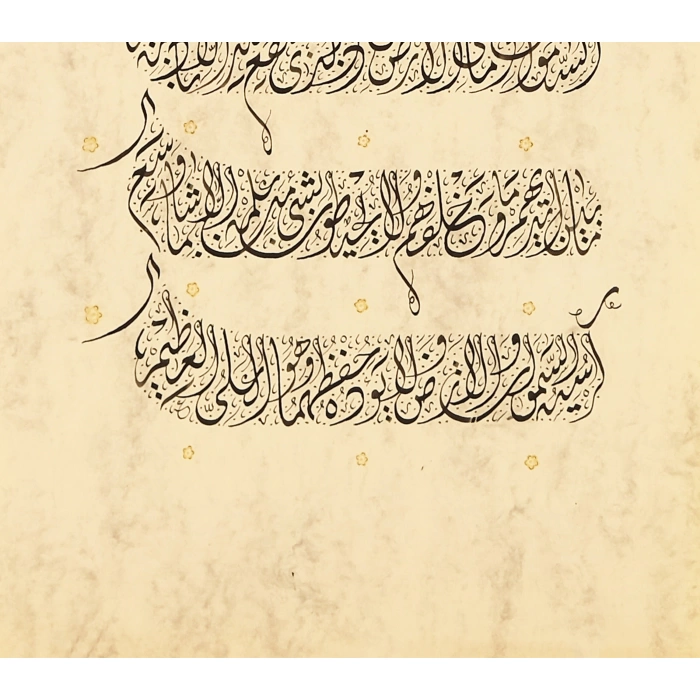 السموات وما فى الارض من ذا الذى يشفع عنده الا باذنه
يعلم ما بين ايديهم وما خلفهم ولا يحيطون بشئ من علمه الا بما شاء وسع
كرسيه السموات والارض ولا يوده حفظهما وهو العلى العظيم